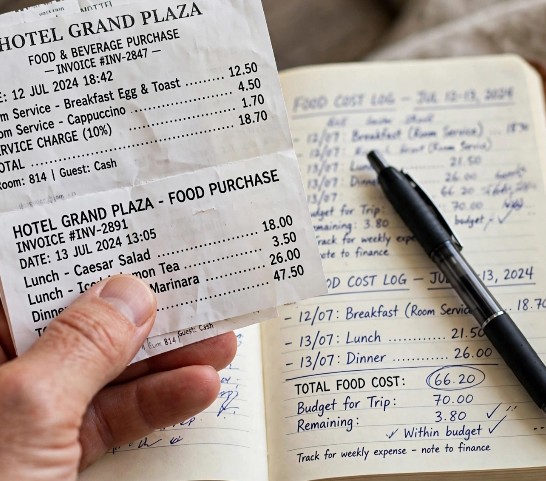 HOTEL GRAND PLAZA
FOOD & BEVERAGE PURCHASE
— INVOICE #INV-2847 —
E: 12 JUL 2024 18:42
om Service - Breakfast Egg & Toast ........ 12.50
om Service - Cappuccino ........ 4.50
ERVICE CHARGE (10%) ........ 1.70
OTAL ........ 18.70
Room: 814 | Guest: Cash
HOTEL GRAND PLAZA - FOOD PURCHASE
INVOICE #INV-2891
DATE: 13 JUL 2024 13:05
Lunch - Caesar Salad ........ 18.00
Lunch - Ice mon Tea ........ 3.50
Dinne Marinara ........ 26.00
47.50
814 | Guest: Cash
FOOD COST LOG – JUL 12-13, 2024
- 12/07: Breakfast (Room Service) ... 18.70
- 12/07:
- 13/07: Lun 21.50
- 13/07: Dinne 26.00
13/07 66.20
udget for Trip: 70.00
emaining: 3.80 budget ✓
rack for weekly expe
note to finance
OOD COST LOG – JUL -13, 2024
- 12/07: Breakfast (Room Servic 18.70
- 13/07: Lunch ........ 21.50
- 13/07: Dinner ........ 26.00
TOTAL FOOD COST: 66.20
Budget for Trip: 70.00
Remaining: 3.80 ✓
✓ Within budget ✓
Track for weekly expense – note to finance